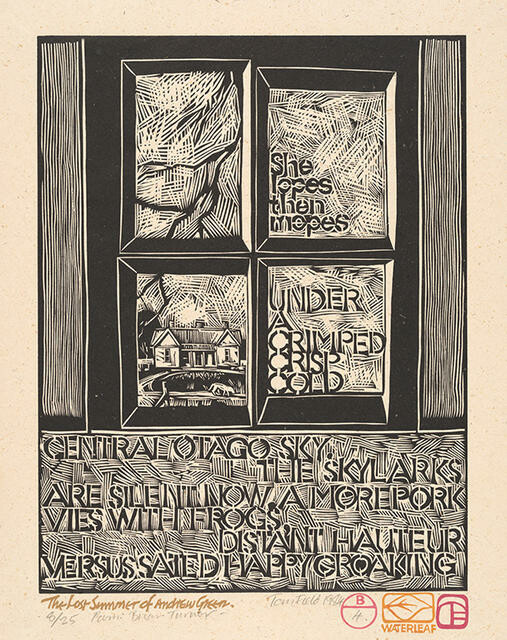 She
lopes
then
mopes
UNDER
A
CRIMPED
CRISP
COLD
CENTRAL OTAGO SKY.
THE SKYLARKS
ARE SILENT NOW. A MOREPORK
VIES WITH FROGS,
DISTANT HAUTEUR
VERSUS SATED HAPPY CROAKING
The Lost Summer of Andrew Green.
Tom Field 1984
/25 Poem: Brian Turner
B
H.
WATERLEAF